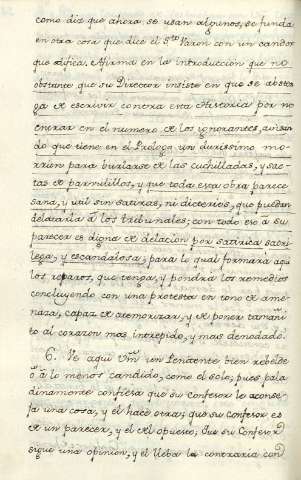 como diz que ahora se usan algunos, se funda
en otra cosa que dice el S.to Varon con un candor
que edifica. Afirma en la introduccion que no
obstante que su Director insiste en que se absten
ga de escrivir contra esta Historia por no
entrar en el numero de los ignorantes, avisan
do que tiene en el Prologo un durissimo mo-
rrion para burlarse de las cuchilladas, y sae-
tas de parvulillos, y que toda esta obra parece
sana, y util sin satiras, ni dicterios, que puedan
delatarla à los tribunales; con todo eso à su
parecer es digna de delacion por satirica sacri
lega, y escandalosa; para lo qual formara aqui
los reparos, que tenga, y pondra los remedios
concluyendo con una protesta en tono de ame-
naza, capaz de atemorizar, y de poner tamañi
to al corazon mas intrepido, y mas denodado.
6. Ve aqui Vm un Penitente bien rebelde
ò à lo menos candido, como el solo; pues pala
dinamente confiesa que su Confesor le aconse-
ja una cosa, y el hace otra; que su Confesor es
de un parecer, y el del opuesto; que su Confesor
sigue una opinion, y el lleba la contraria con